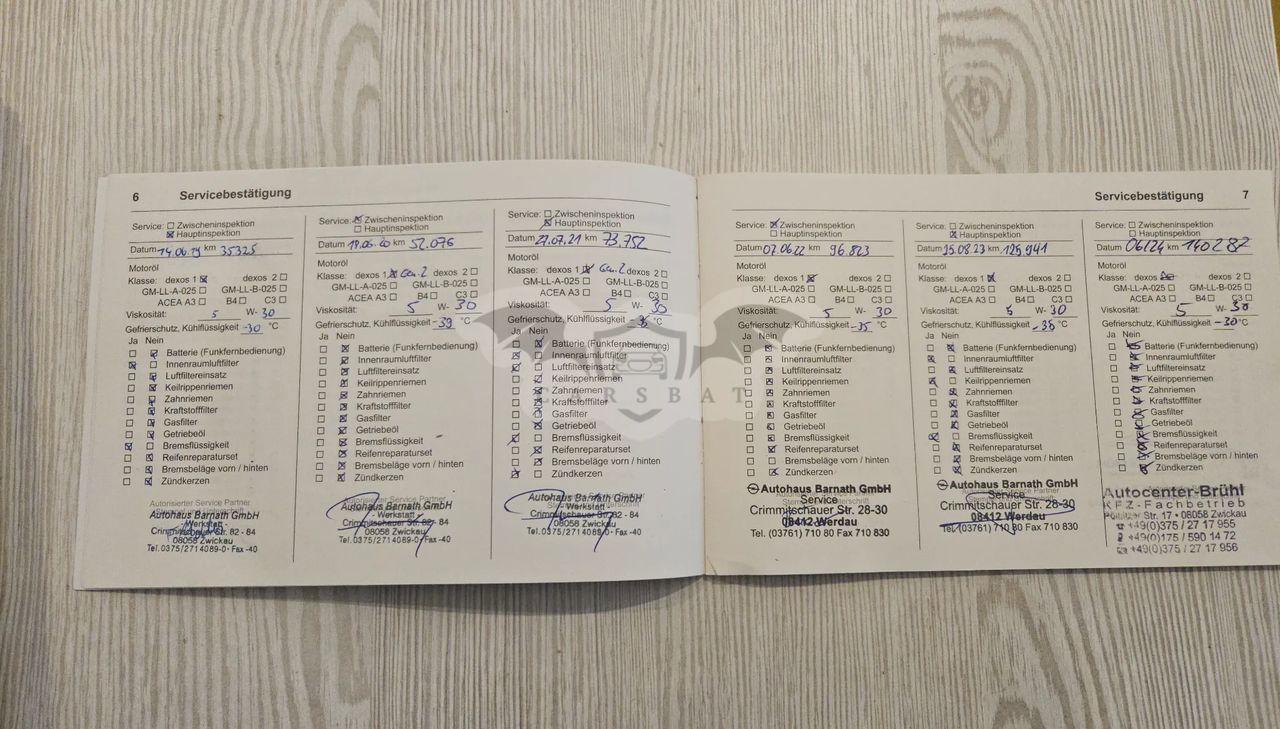 6 Servicebestätigung
Service: Zwischeninspektion
Hauptinspektion
Datum 14.06.19 km 35325
Motoröl
Klasse: dexos 1 dexos 2
GM-LL-A-025 GM-LL-B-025
ACEA A3 B4 C3
Viskosität: 5 W- 30
Gefrierschutz, Kühlflüssigkeit -30 °C
Ja Nein
Batterie (Funkfernbedienung)
Innenraumluftfilter
Luftfiltereinsatz
Keilrippenriemen
Zahnriemen
Kraftstofffilter
Gasfilter
Getriebeöl
Bremsflüssigkeit
Reifenreparaturset
Bremsbeläge vorn / hinten
Zündkerzen
Autorisierter Service Partner
Autohaus Barnath GmbH
- Werkstatt -
Str. 82 - 84
08058 Zwickau
Tel. 0375/2714089-0 · Fax -40
Service: Zwischeninspektion
Hauptinspektion
Datum km 52.076
Motoröl
Klasse: dexos 1 Gen. 2 dexos 2
GM-LL-A-025 GM-LL-B-025
ACEA A3 B4 C3
Viskosität: 5 W- 30
Gefrierschutz, Kühlflüssigkeit -39 °C
Ja Nein
Batterie (Funkfernbedienung)
Innenraumluftfilter
Luftfiltereinsatz
Keilrippenriemen
Zahnriemen
Kraftstofffilter
Gasfilter
Getriebeöl
Bremsflüssigkeit
Reifenreparaturset
Bremsbeläge vorn / hinten
Zündkerzen
Autorisierter Service Partner
Autohaus Barnath GmbH
- Werkstatt -
Crimmitschauer Str. 82 - 84
08058 Zwickau
Tel. 0375/2714089-0 · Fax -40
Service: Zwischeninspektion
Hauptinspektion
Datum 27.07.21 km 73.752
Motoröl
Klasse: dexos 1 Gen. 2 dexos 2
GM-LL-A-025 GM-LL-B-025
ACEA A3 B4 C3
Viskosität: 5 W- 30
Gefrierschutz, Kühlflüssigkeit °C
Ja Nein
Batterie (Funkfernbedienung)
Innenraumluftfilter
Luftfiltereinsatz
Keilrippenriemen
Zahnriemen
Kraftstofffilter
Gasfilter
Getriebeöl
Bremsflüssigkeit
Reifenreparaturset
Bremsbeläge vorn / hinten
Zündkerzen
Autohaus Barnath GmbH
- Werkstatt -
Crimmitschauer Str. 82 - 84
08058 Zwickau
Tel. 0375/2714089-0 · Fax -40
CARSBAT
Servicebestätigung 7
Service: Zwischeninspektion
Hauptinspektion
Datum 07.06.22 km 96.823
Motoröl
Klasse: dexos 1 dexos 2
GM-LL-A-025 GM-LL-B-025
ACEA A3 B4 C3
Viskosität: 5 W- 30
Gefrierschutz, Kühlflüssigkeit -35 °C
Ja Nein
Batterie (Funkfernbedienung)
Innenraumluftfilter
Luftfiltereinsatz
Keilrippenriemen
Zahnriemen
Kraftstofffilter
Gasfilter
Getriebeöl
Bremsflüssigkeit
Reifenreparaturset
Bremsbeläge vorn / hinten
Zündkerzen
Autohaus Barnath GmbH
Service
Crimmitschauer Str. 28-30
08412 Werdau
Tel. (03761) 710 80 Fax 710 830
Service: Zwischeninspektion
Hauptinspektion
Datum km 125.941
Motoröl
Klasse: dexos 1 dexos 2
GM-LL-A-025 GM-LL-B-025
ACEA A3 B4 C3
Viskosität: 5 W- 30
Gefrierschutz, Kühlflüssigkeit °C
Ja Nein
Batterie (Funkfernbedienung)
Innenraumluftfilter
Luftfiltereinsatz
Keilrippenriemen
Zahnriemen
Kraftstofffilter
Gasfilter
Getriebeöl
Bremsflüssigkeit
Reifenreparaturset
Bremsbeläge vorn / hinten
Zündkerzen
Autohaus Barnath GmbH
Service
Crimmitschauer Str. 28-30
08412 Werdau
Tel. (03761) 710 80 Fax 710 830
Service: Zwischeninspektion
Hauptinspektion
Datum 06/24 km 140287
Motoröl
Klasse: dexos dexos 2
GM-LL-A-025 GM-LL-B-025
ACEA A3 B4 C3
Viskosität: 5 W- 30
Gefrierschutz, Kühlflüssigkeit -30 °C
Ja Nein
Batterie (Funkfernbedienung)
Innenraumluftfilter
Luftfiltereinsatz
Keilrippenriemen
Zahnriemen
Kraftstofffilter
Gasfilter
Getriebeöl
Bremsflüssigkeit
Reifenreparaturset
Bremsbeläge vorn / hinten
Zündkerzen
Autocenter-Brühl
KFZ-Fachbetrieb
Str. 17 • 08058 Zwickau
+49(0)375 / 27 17 955
+49(0)175 / 590 14 72
+49(0)375 / 27 17 956